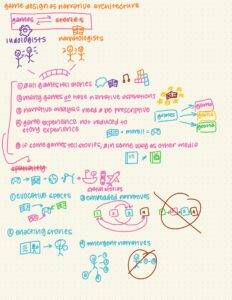 game design as narrative architecture
games stories
ludologists narratologists
① not all games tell stories
② many games do have narrative aspirations
③ narrative analysis need not be prescriptive
games
game
game
game
④ game experience not reduced to story experience
+ more!! =
⑤ if some games tell stories, ain't same way as other media
spatiality
spatial stories
① evocative spaces
② embedded narratives
③ enacting stories
④ emergent narratives